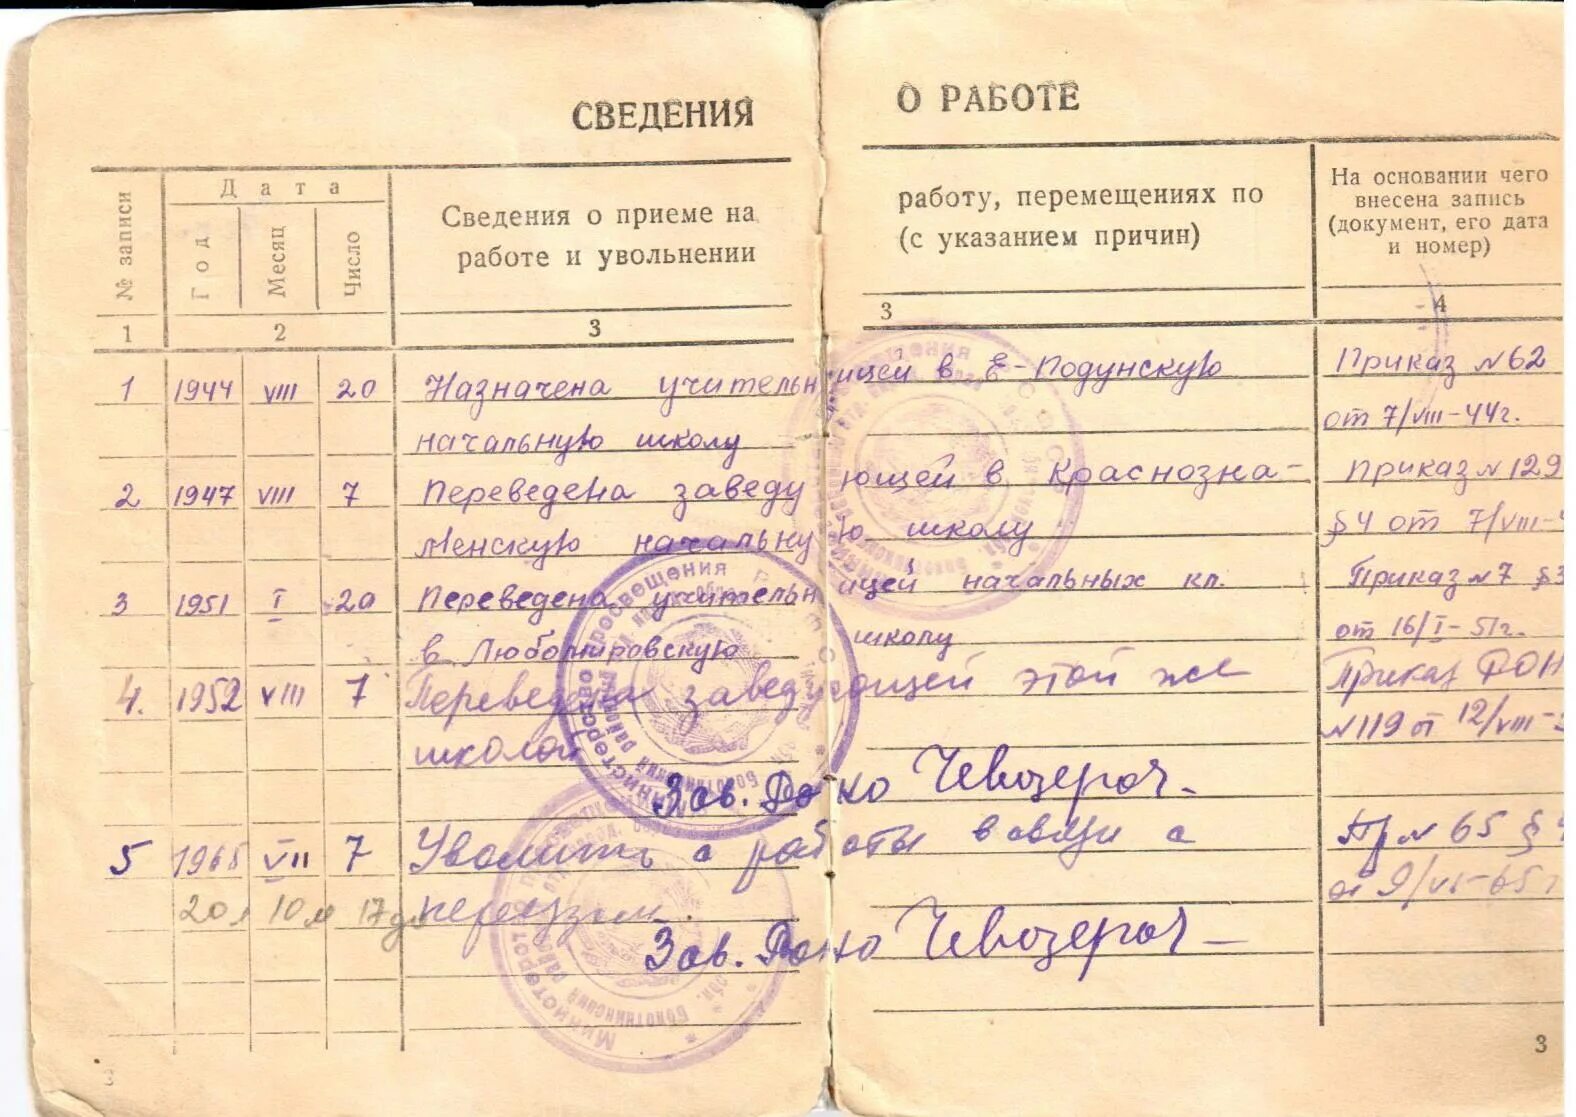 СВЕДЕНИЯ О РАБОТЕ
№ записи
Дата
Год
Месяц
Число
Сведения о приеме на работу, перемещениях по
работе и увольнении (с указанием причин)
На основании чего
внесена запись
(документ, его дата
и номер)
1 2 3 3 4
1 1944 VIII 20 Назначена учительницей в Е-Подунскую Приказ №62
начальную школу от 7/VIII-44г.
2 1947 VIII 7 Переведена заведующей в Краснозна- Приказ № 129
менскую начальную школу §4 от 7/VIII-4
3 1951 I 20 Переведена учительницей начальных кл. Приказ №7 §3
в Любомировскую школу от 16/I-51г.
4. 1952 VIII 7 Переведена заведующей этой же Приказ РОН
школой №119 от 12/VIII-5
Зав. Роно
5 1965 VII 7 Уволить с работы в связи с Пр № 65 § 4
20л 10м 17дн переездом. от 9/VI-65г
Зав. Роно
Министерство просвещения РСФСР
Болотнинский
3